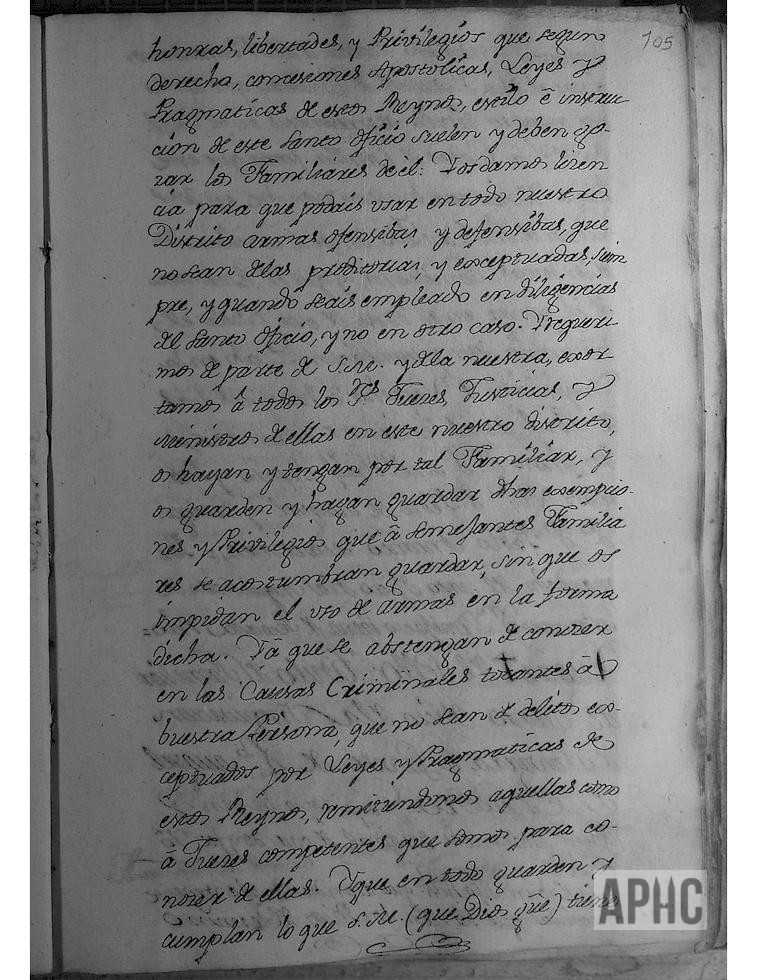 105
honras, libertades, y Privilegios que segun
derecho, concesiones Apostolicas, Leyes y
Pragmaticas de estos Reynos, estilo è instruc
cion de este Santo Oficio suelen y deben go-
zar los Familiares de èl: Vos damos licen
cia para que podais usar en todo nuestro
Distrito armas ofensibas y defensibas, que
no sean de las proditorias, y exceptuadas, siem
pre, y quando seais empleado en diligencias
del Santo Oficio, y no en otro caso. Y requeri-
mos de parte de S.M. y de la nuestra, exor
tamos à todos los Jueces, Justicias, y
Ministros de ellas en este nuestro distrito,
os hayan y tengan por tal Familiar, y
os guarden y hagan guardar dhas exempcio-
nes y Privilegios que à semejantes Familia
res se acostumbran guardar, sin que os
impidan el uso de armas en la forma
dicha. Y à que se abstengan de conocer
en las Causas Criminales tocantes à
buestra Persona, que no sean de delitos ex-
ceptuados por Leyes y Pragmaticas de
estos Reynos, remitiendonos aquellas como
à Jueces competentes que somos para co-
nocer de ellas. Y que en todo guarden y
cumplan lo que S.M. (que Dios gũe) tiene
APHC